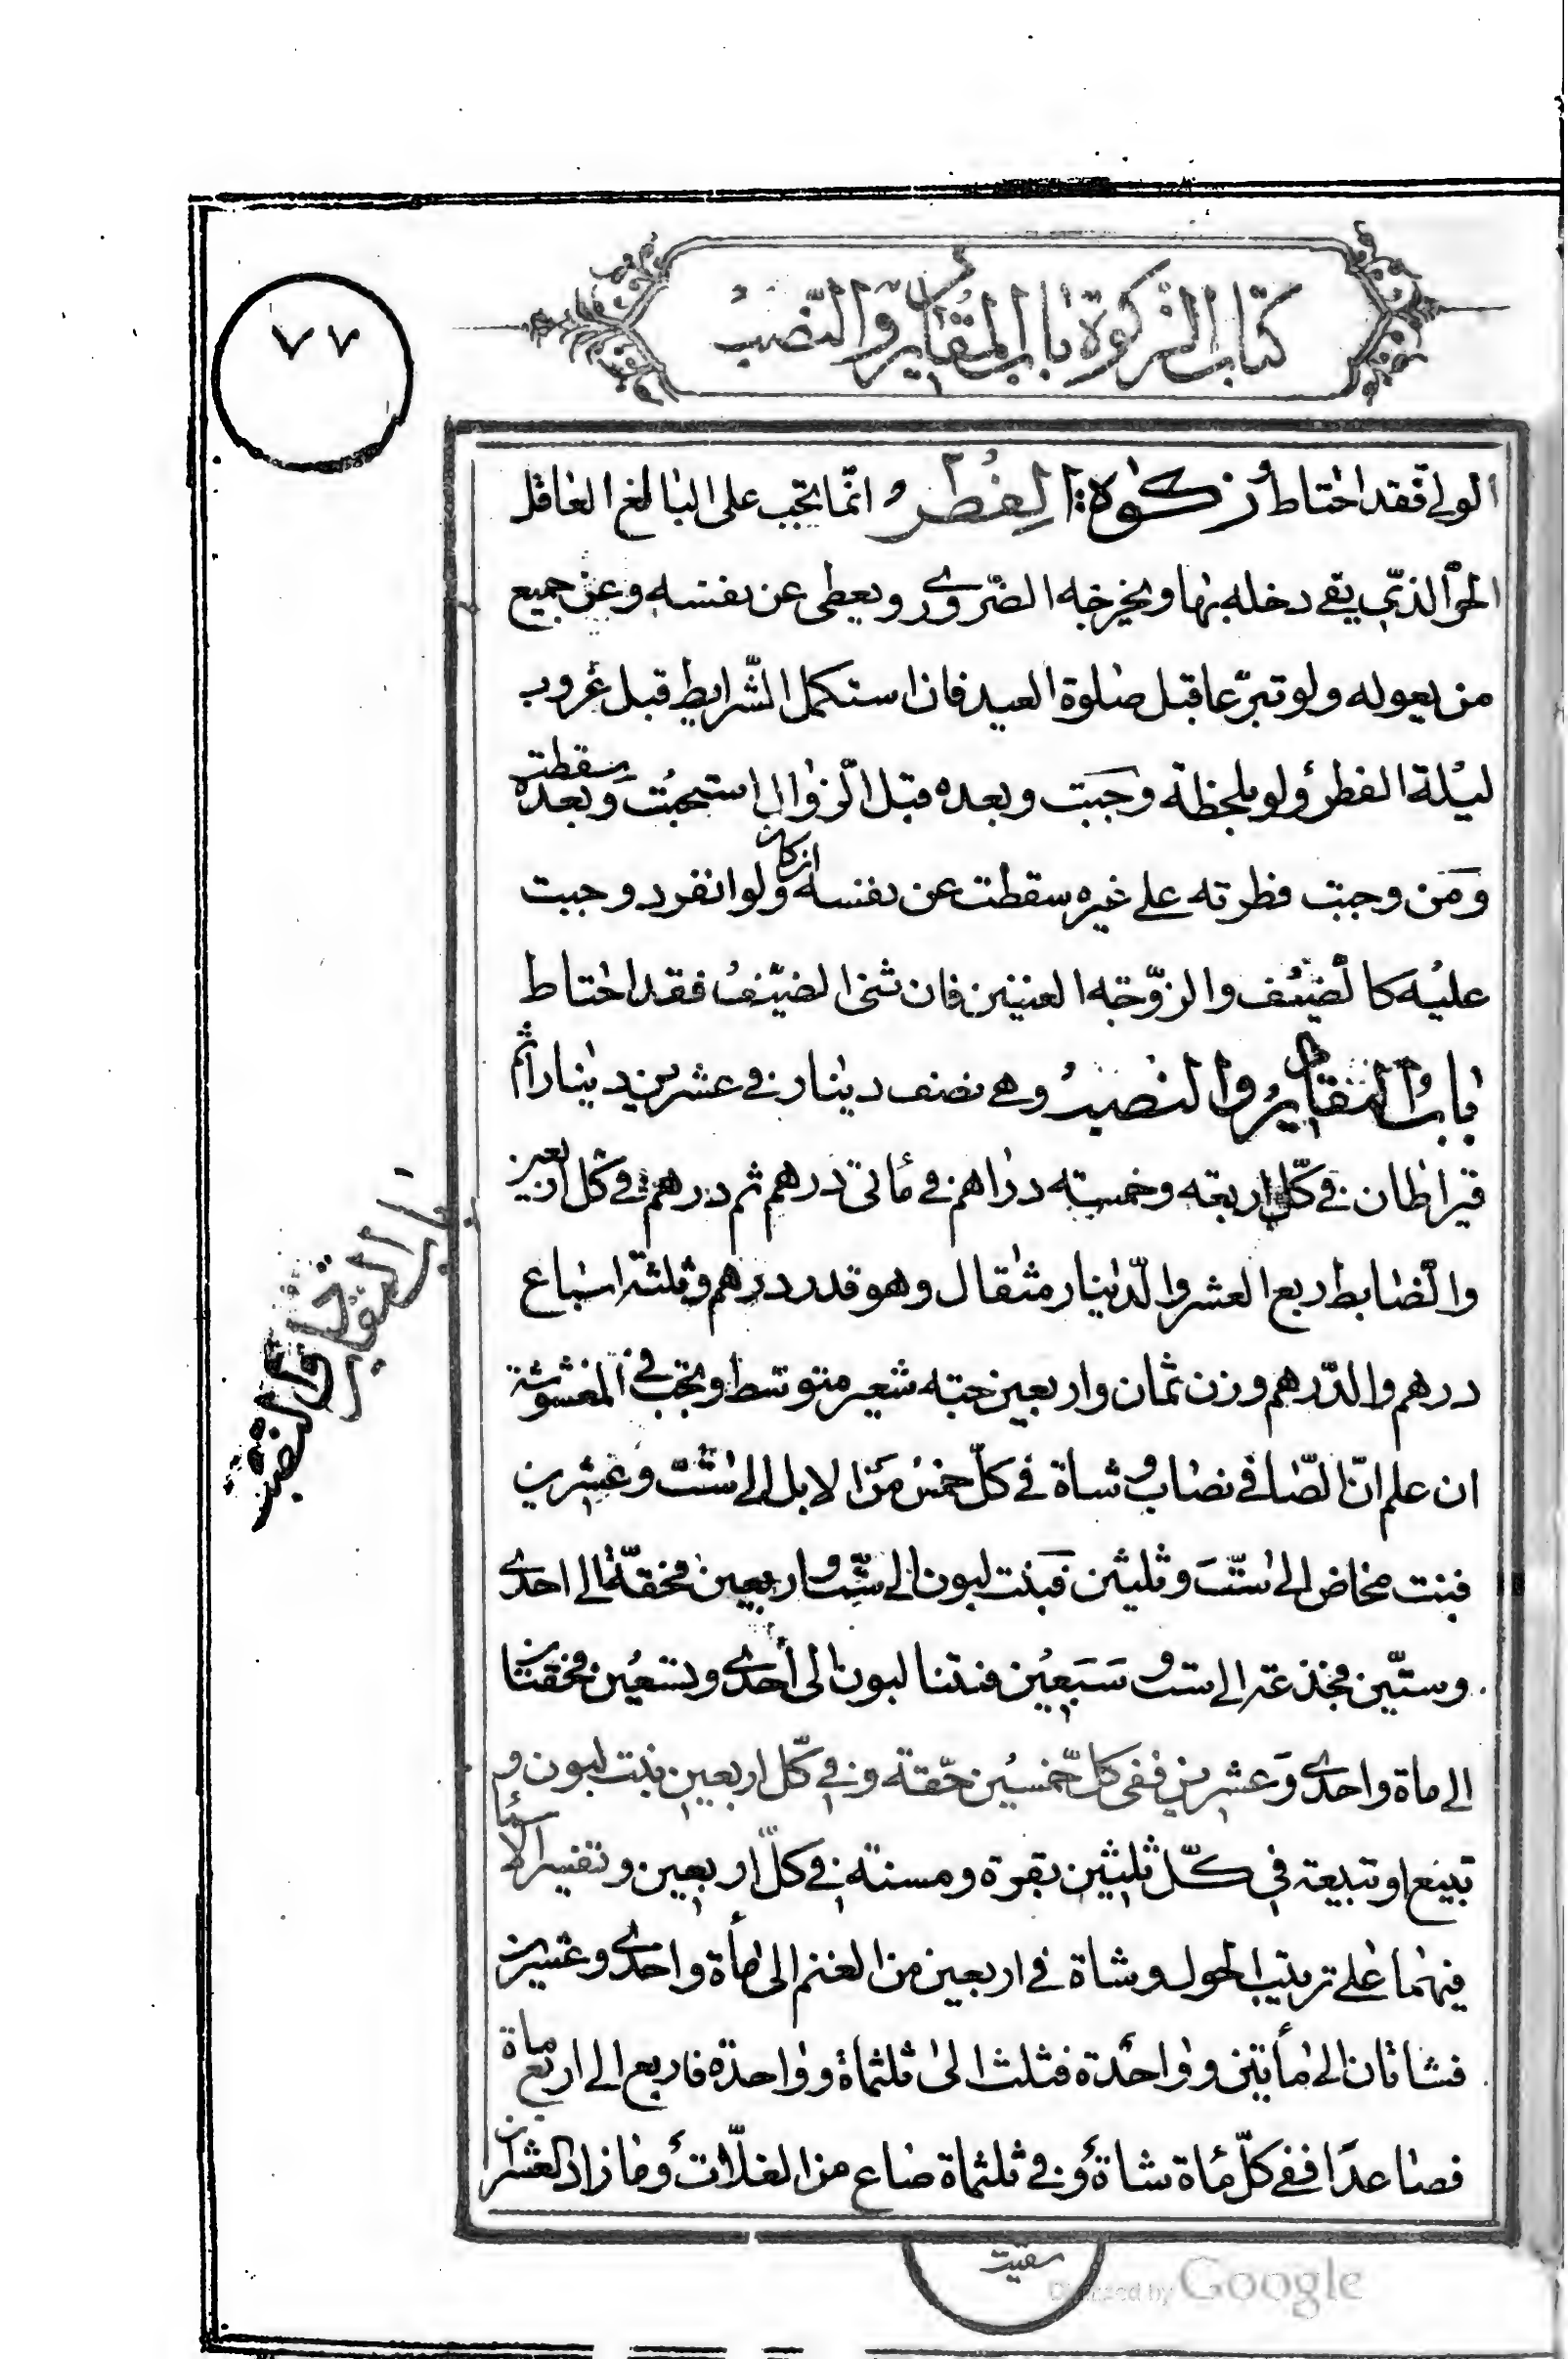 كتاب الزكوة باب المقادير والنصب
٧٧
الولي فقد احتاط زكوة الفطر وانما تجب على البالغ العاقل
الحر الذي يفي دخله بها وبخرجه الضروري ويعطي عن نفسه وعن جميع
من يعوله ولو تبرعا قبل صلوة العيد فاذا استكمل الشرايط قبل غروب
ليلة الفطر ولو بلحظة وجبت وبعده قبل الزوال استحبت وبعده سقطت
ومن وجبت فطرته على غيره سقطت عن نفسه وان كان لو انفرد وجبت
عليه كالضيف والزوجة الغنيين فان شخ الضيف فقد احتاط
باب المقادير والنصب وهي نصف دينار في عشرين دينارا ثم
قيراطان في كل اربعة وخمسة دراهم في مأتي درهم ثم درهم في كل اربعين
والضابط ربع العشر والدينار مثقال وهو قدر درهم وثلثة اسباع
درهم والدرهم وزن ثمان واربعين حبة شعير متوسط وتجب في المغشوشة
ان علم ان الصافي نصاب وشاة في كل خمس من الابل الى ست وعشرين
فبنت مخاض الى ست وثلثين فبنت لبون الى ست واربعين فحقة الى احدى
وستين فجذعة الى ست وسبعين فبنتا لبون الى احدى وتسعين فحقتان
الى ماة واحدى وعشرين ففي كل خمسين حقة وفي كل اربعين بنت لبون و
تبيع او تبيعة في كل ثلثين بقرة ومسنة في كل اربعين وتفسير الاسنان
فيهما على ترتيب الحول وشاة في اربعين من الغنم الى مأة واحدى وعشرين
فشاتان الى مأتين وواحدة فثلث الى ثلثماة وواحدة فاربع الى اربعماة
فصاعدا ففي كل مأة شاة وفي ثلثماة صاع من الغلات وما زاد العشر ان
سقيت
باب المقادير والنصب
Digitized by Google